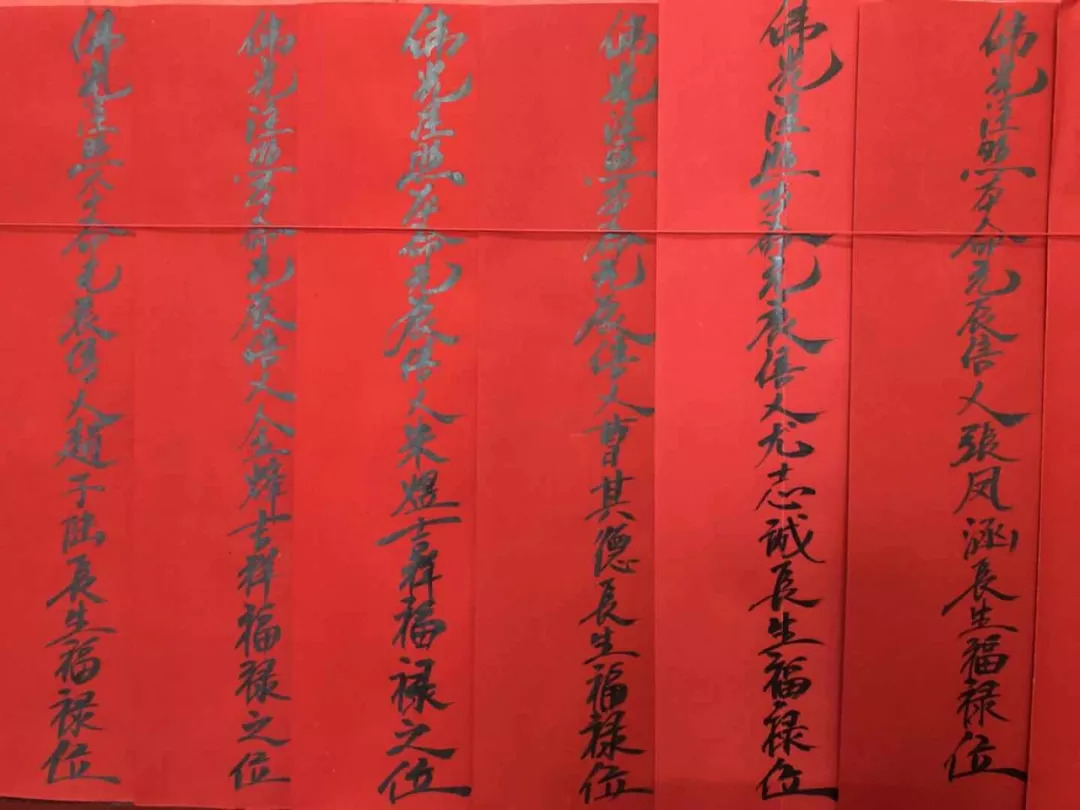 佛光注照本命元辰信人張凤涵長生福禄位
佛光注照本命元辰信人尤志诚長生福禄位
佛光注照本命元辰信人曹其德長生福禄位
佛光注照本命元辰信人朱煜吉祥福禄之位
佛光注照本命元辰信人金烨吉祥福禄之位
佛光注照本命元辰信人趙子陆長生福禄位